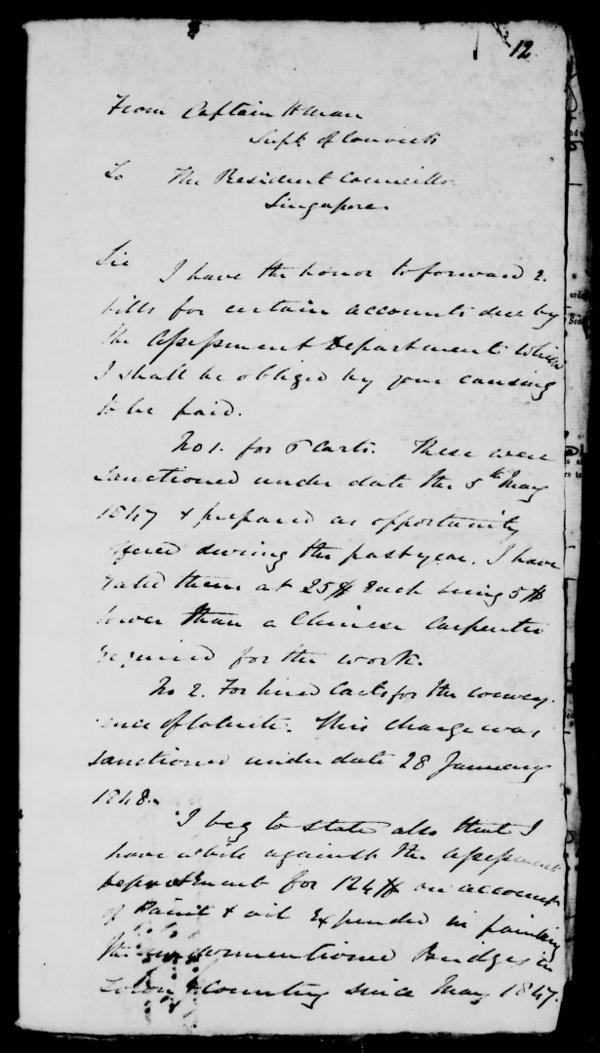 12
From Captain H Man
Supt of Convicts
To The Resident Councillor
Singapore
Sir
I have the honor to forward 2
bills for certain accounts due by
the Assessment Department which
I shall be obliged by your causing
to be paid.
No 1. for 6 Carts. These were
sanctioned under date the 5th May
1847 & prepared as opportunity
offered during the past year. I have
rated them at 25$ each being 5$
lower than a Chinese Carpenter
required for the work.
No 2. For hired Carts for the convey
ence of laterite. This charge was
sanctioned under date 28 January
1848.
I beg to state also that I
have a bill against the Assessment
Department for 124$ on account
of Paint & oil Expended in painting
the undermentioned Bridges in
Town & Country since May 1847.